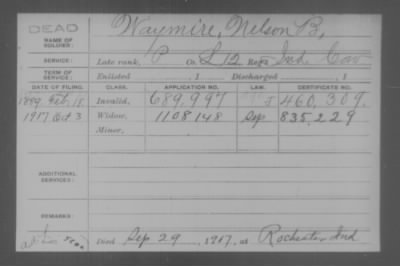 DEAD
NAME OF SOLDIER:
Waymire, Nelson B,
SERVICE:
Late rank, P Co. L 12 Reg't Ind. Cav
TERM OF SERVICE:
Enlisted , 1 Discharged , 1
DATE OF FILING. CLASS. APPLICATION NO. LAW. CERTIFICATE NO.
1889 Feb, 18 Invalid, 689,997 J 460,309.
1917 Oct 3 Widow, 1108148 Sep 835,229
Minor,
ADDITIONAL SERVICES:
REMARKS:
Died Sep 29, 1917, at Rochester Ind